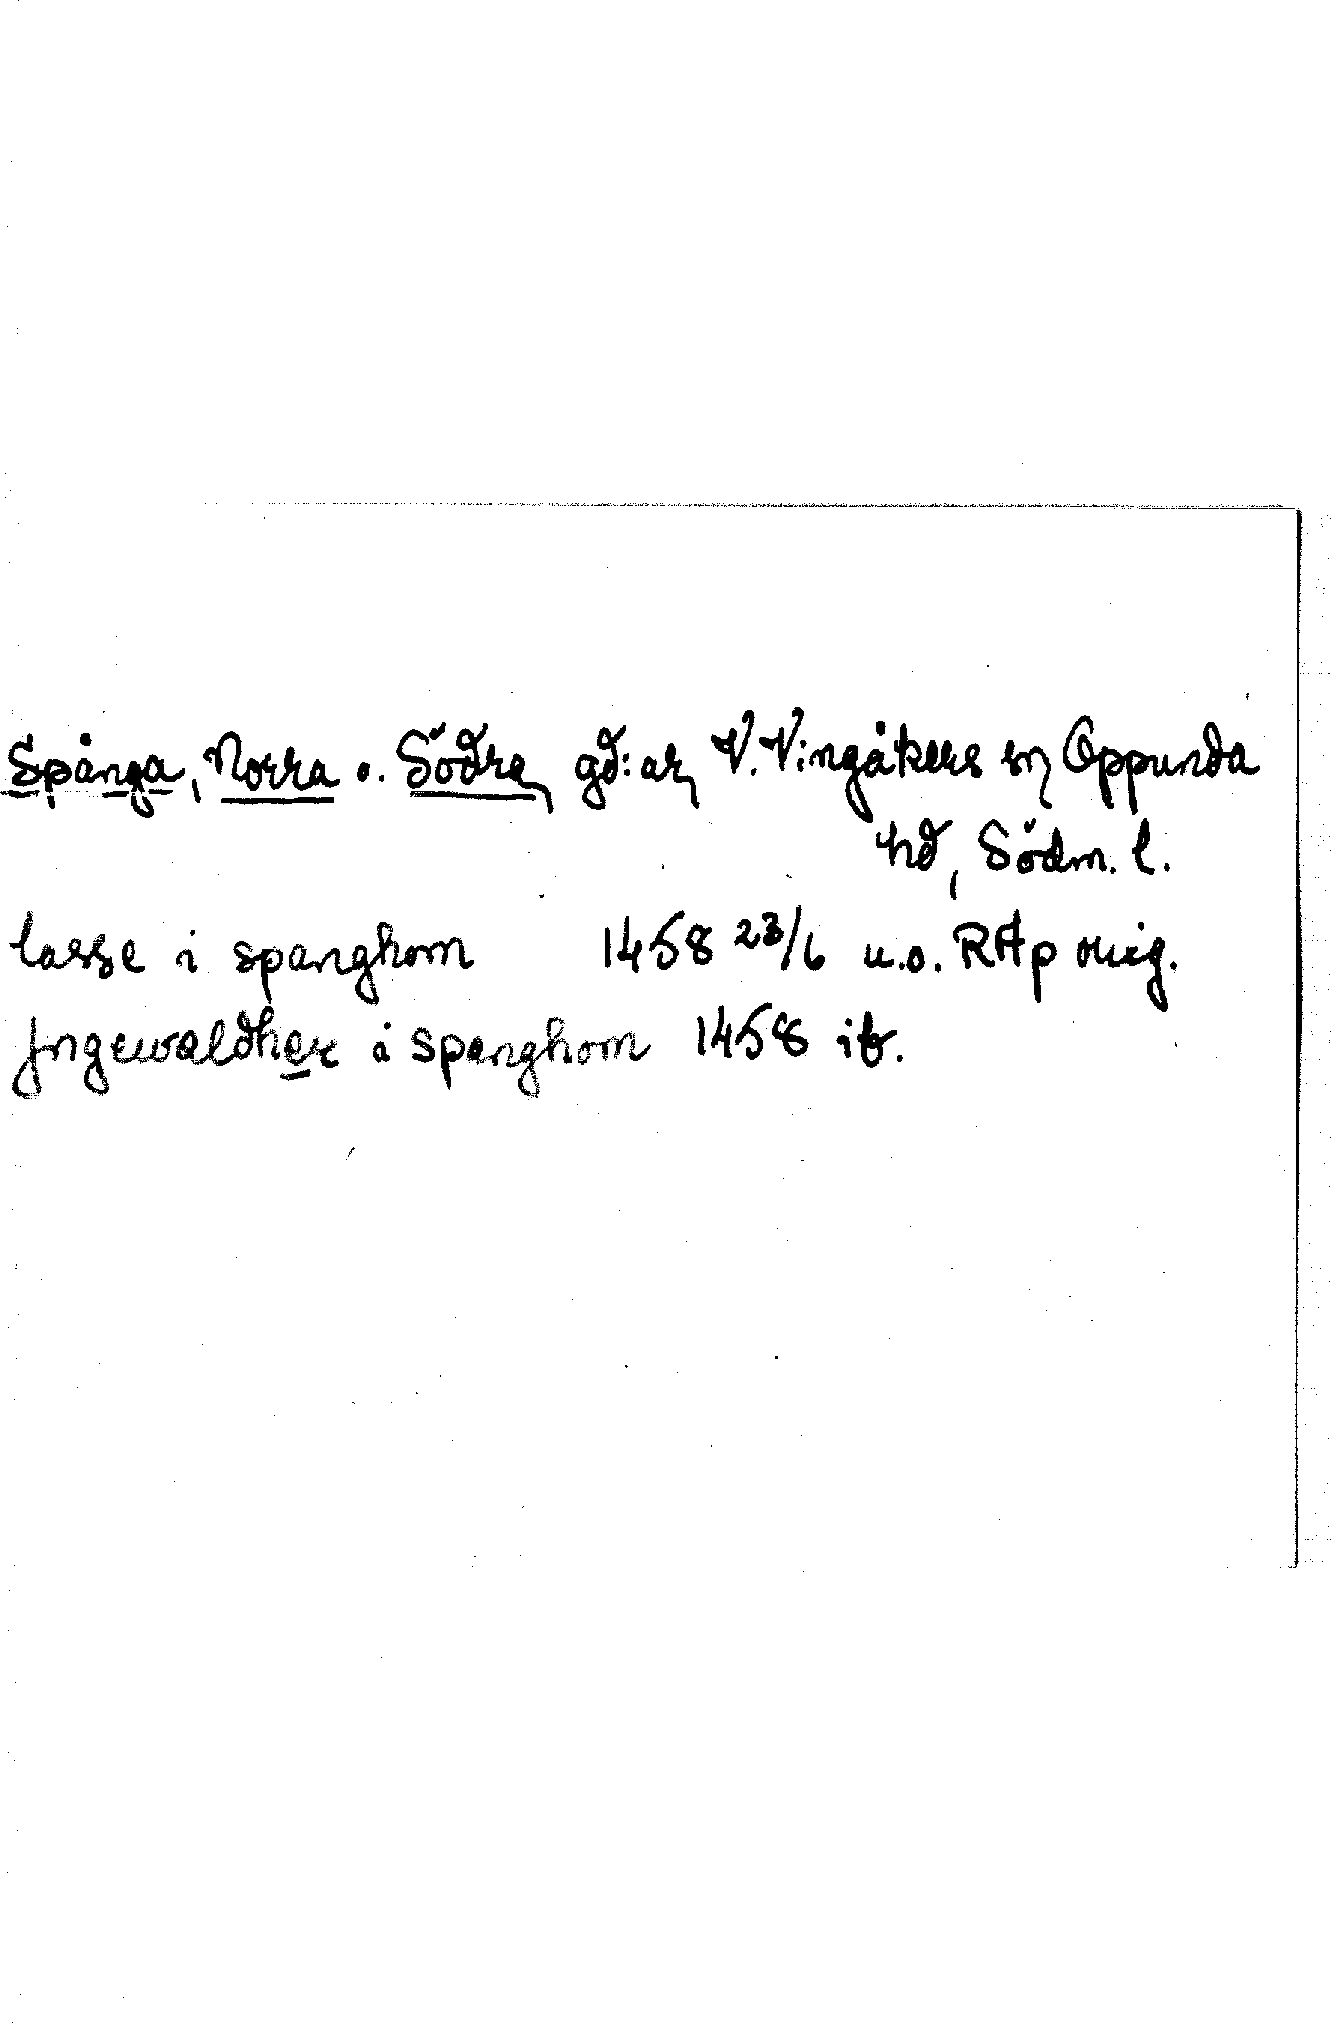 Spånga, Norra o. Södra, gd:ar, V. Vingåkers sn, Oppunda
hd, Södm. l.
lasse i spanghom 1458 23/6 u.o. RAp orig.
Jngewaldher i spanghom 1458 ib.